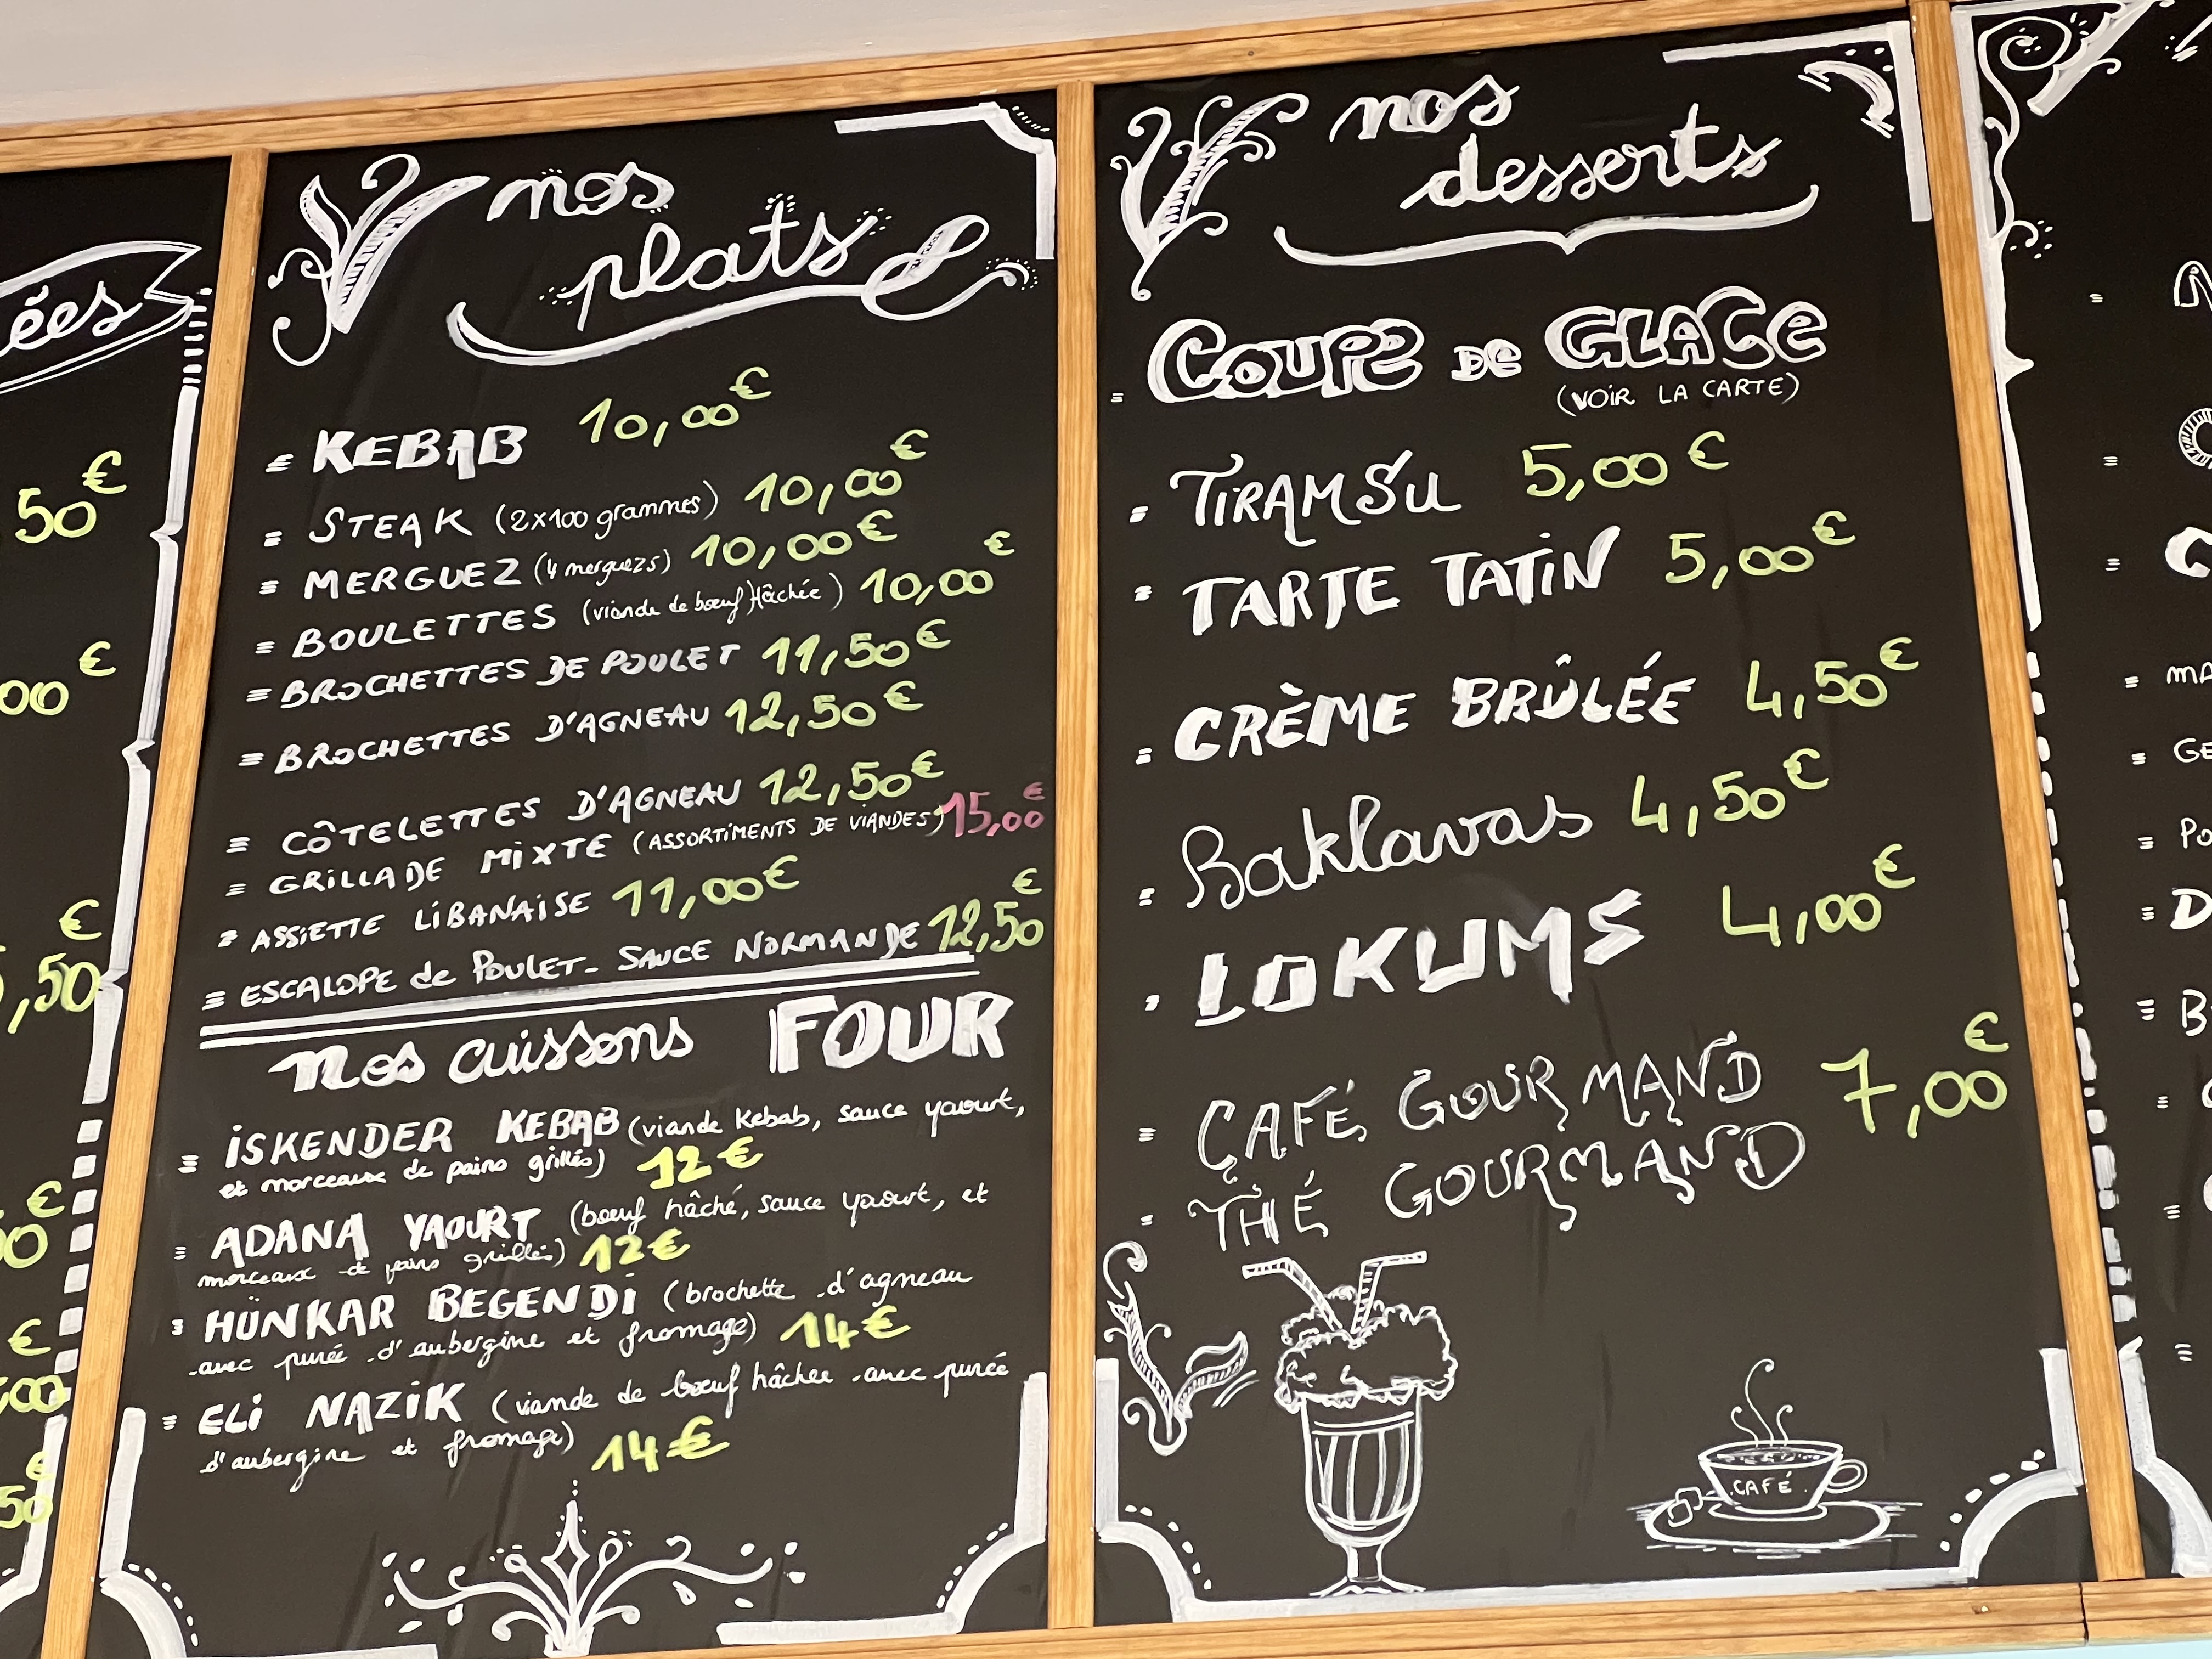 ées
50€
00€
,50€
€
€
50
nos
plats
KEBAB 10,00€
STEAK (2x100 grammes) 10,00€
MERGUEZ (4 merguezs) 10,00€
BOULETTES (viande de bœuf Hâchée) 10,00€
BROCHETTES DE POULET 11,50€
BROCHETTES D'AGNEAU 12,50€
CÔTELETTES D'AGNEAU 12,50€
GRILLADE MIXTE (ASSORTIMENTS DE VIANDES) 15,00€
ASSIETTE LIBANAISE 11,00€
ESCALOPE de POULET- SAUCE NORMANDE 12,50€
Nos cuissons FOUR
İSKENDER KEBAB (viande Kebab, sauce yaourt,
et morceaux de pains grillés) 12€
ADANA YAOURT (bœuf hâché, sauce yaourt, et
morceaux de pains grillés) 12€
HÜNKAR BEGENDİ (brochette d'agneau
avec purée d'aubergine et fromage) 14€
ELİ NAZİK (viande de bœuf hâchée avec purée
d'aubergine et fromage) 14€
nos
desserts
COUPE DE GLACE
(VOIR LA CARTE)
TIRAMSU 5,00€
TARTE TATIN 5,00€
CRÈME BRÛLÉE 4,50€
Baklavas 4,50€
LOKUMS 4,00€
CAFÉ GOURMAND 7,00€
THÉ GOURMAND
CAFÉ
MA
GE
PO
D
B